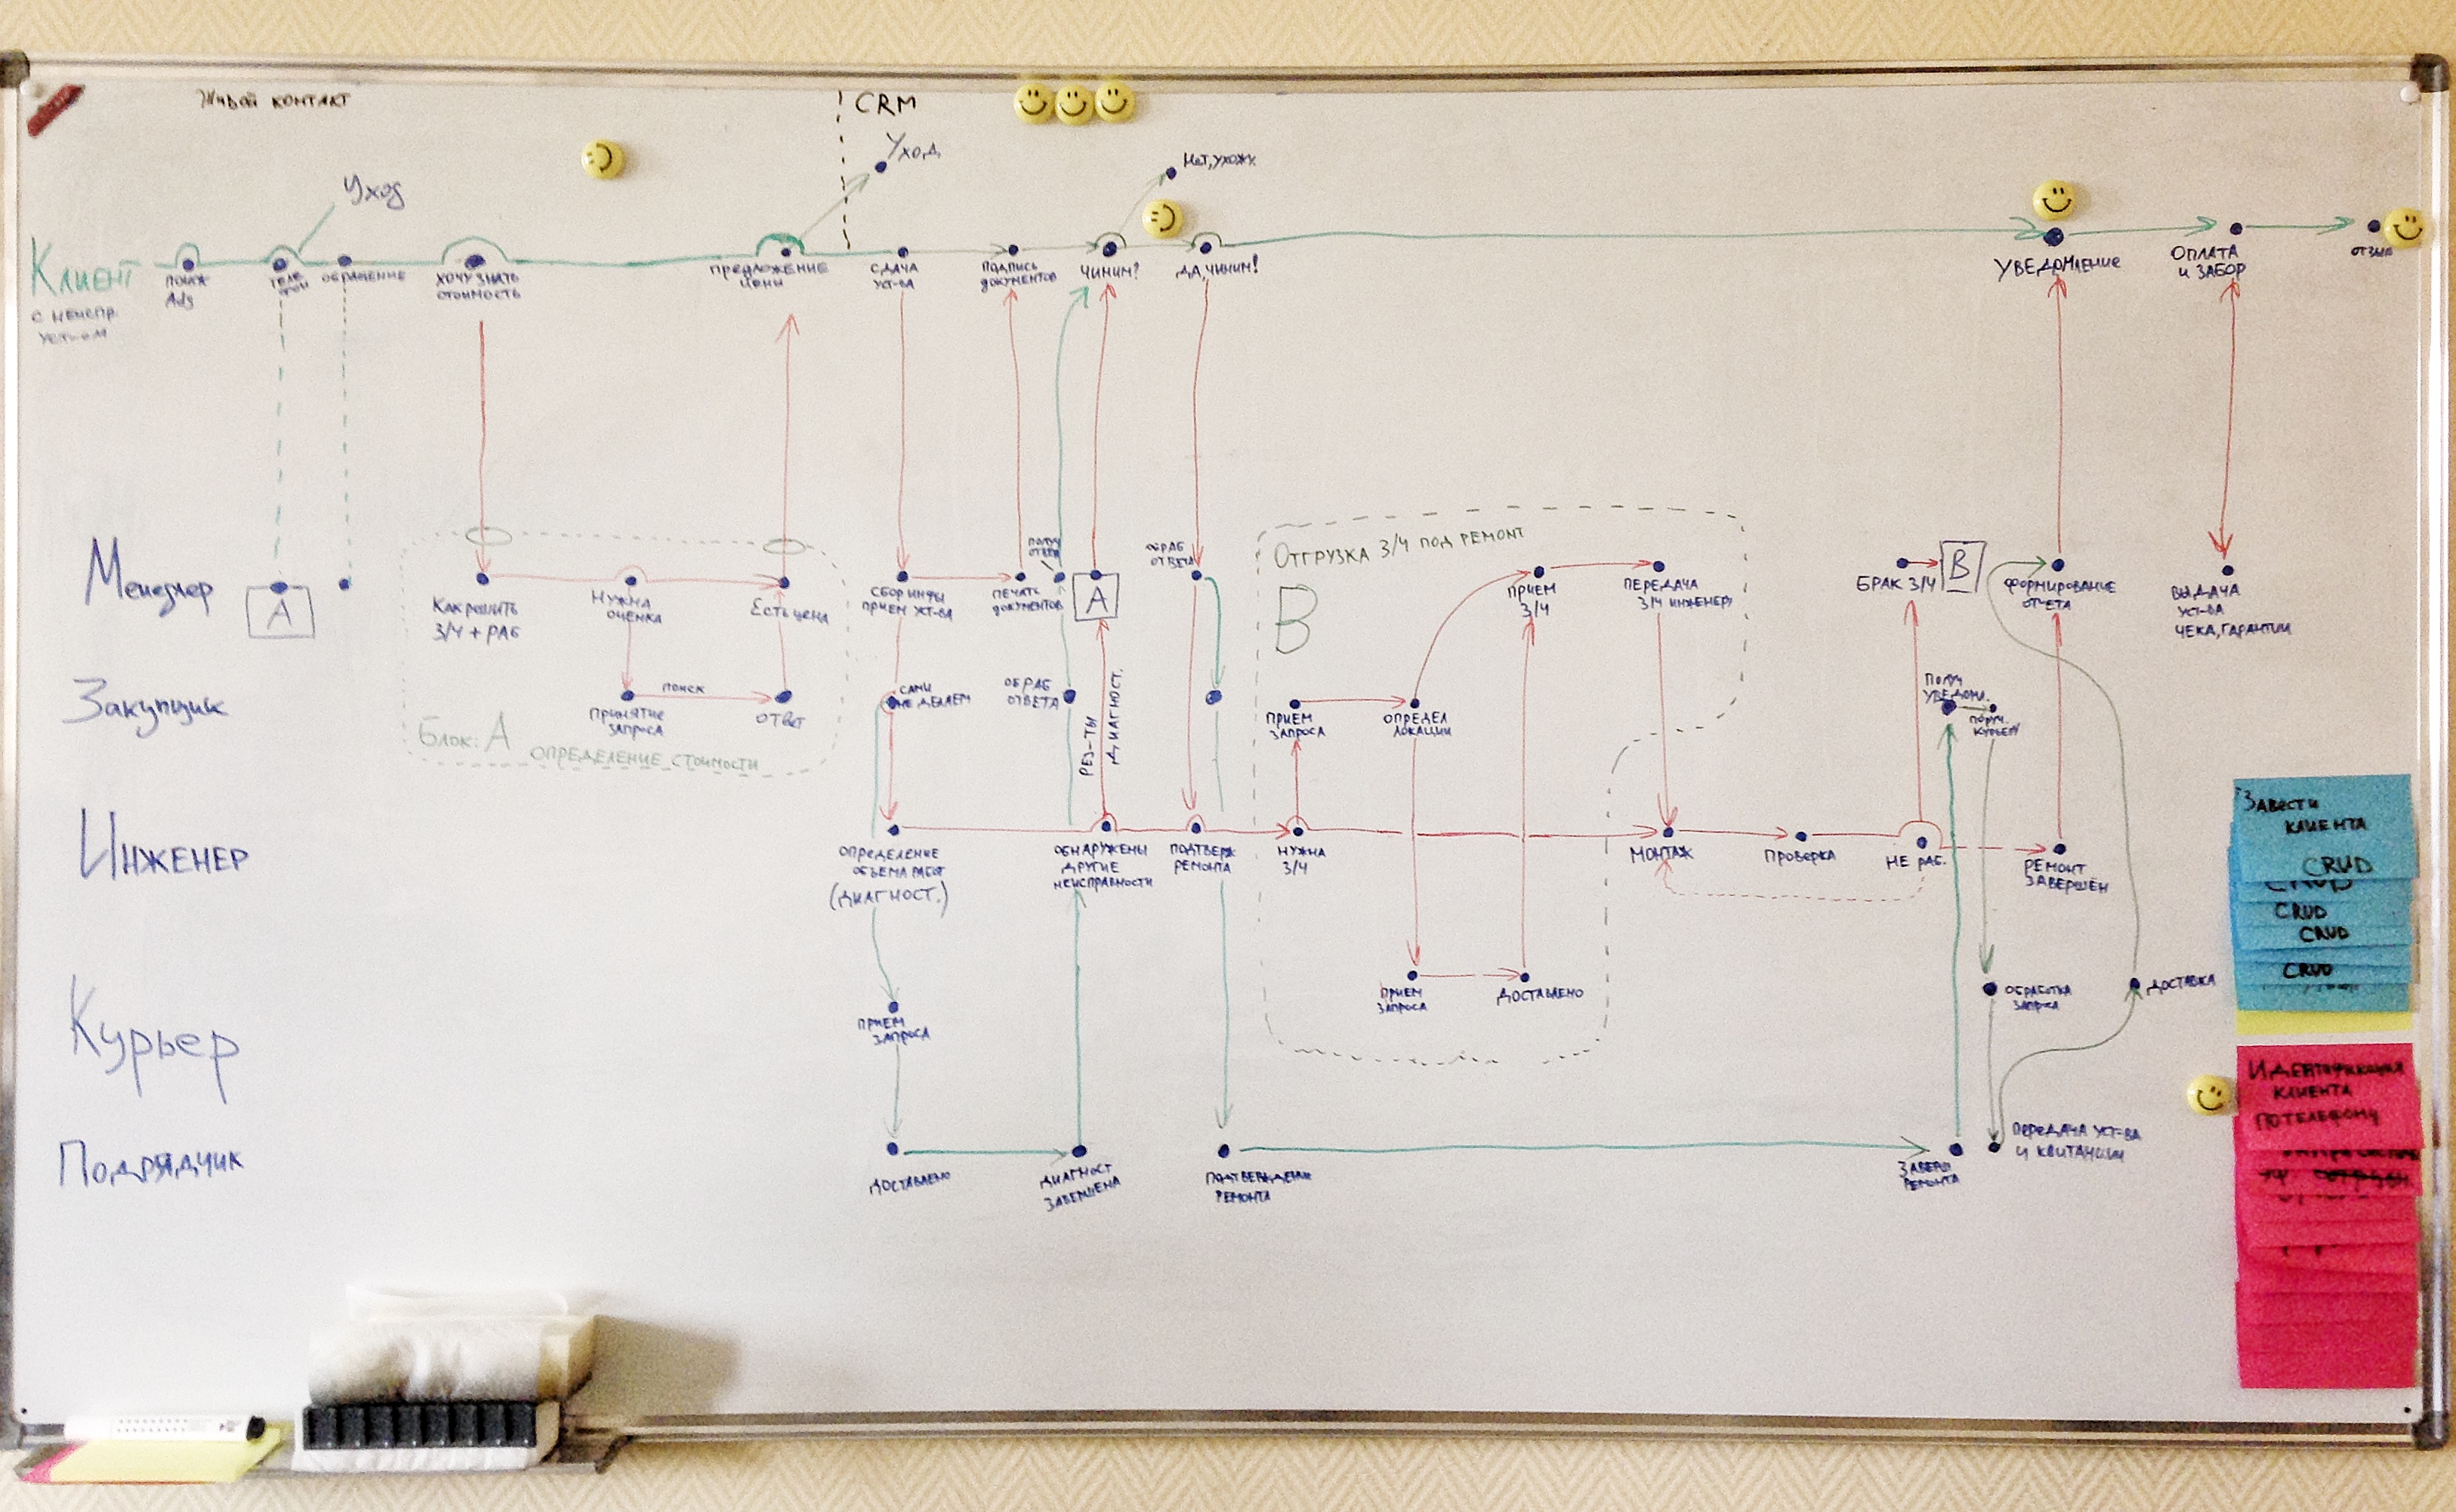 Живой контакт
CRM
Уход
Уход
Нет, ухожу.
Клиент
с неиспр.
уст-ом
поиск
Ads
теле
фон
обращение
хочу знать
стоимость
предложение
цены
сдача
уст-ва
подпись
документов
чиним?
да, чиним!
уведомление
оплата
и забор
отзыв
Менеджер
A
Как решить
З/Ч + РАБ
Нужна
оценка
Есть цена
сбор инфы
прием уст-ва
печать
документов
получ
ответа
A
обраб
ответа
Отгрузка З/Ч под ремонт
B
прием
З/Ч
передача
З/Ч инженеру
брак З/Ч
B
формирование
отчета
выдача
уст-ва
чека, гарантии
Закупщик
принятие
запроса
поиск
ответ
Блок: A
определение стоимости
сами
не делаем
обраб
ответа
рез-ты
диагност.
прием
запроса
определ
локации
получ
уведомл.
поруч.
курьеру
Инженер
определение
объема работ
(диагност.)
обнаружены
другие
неисправности
подтверж
ремонта
нужна
З/Ч
монтаж
проверка
не раб.
ремонт
завершён
Курьер
прием
запроса
прием
запроса
доставлено
обработка
запроса
доставка
Подрядчик
доставлено
диагност
завершена
подтверждение
ремонта
заверш
ремонта
передача уст-ва
и квитанции
Завести
клиента
CRUD
CRUD
CRUD
CRUD
CRUD
Идентификация
клиента
по телефону